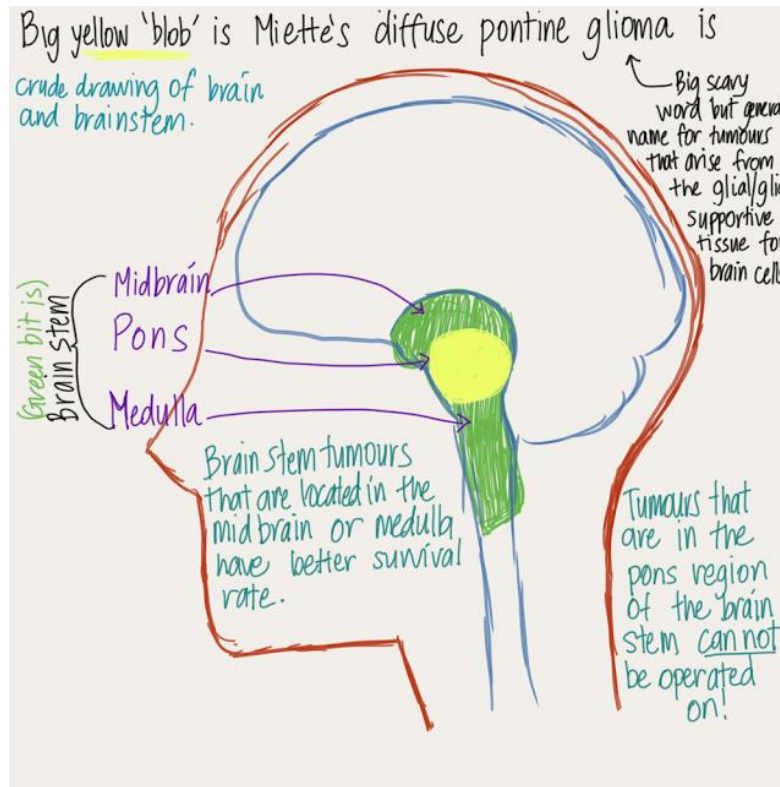 Big yellow 'blob' is Miette's diffuse pontine glioma is
crude drawing of brain
and brainstem.
Big scary
word but general
name for tumours
that arise from
the glial/
supportive
tissue for
brain cells
(Green bit is)
Brain stem
Midbrain
Pons
Medulla
Brain stem tumours
that are located in the
midbrain or medulla
have better survival
rate.
Tumours that
are in the
pons region
of the brain
stem cannot
be operated
on!